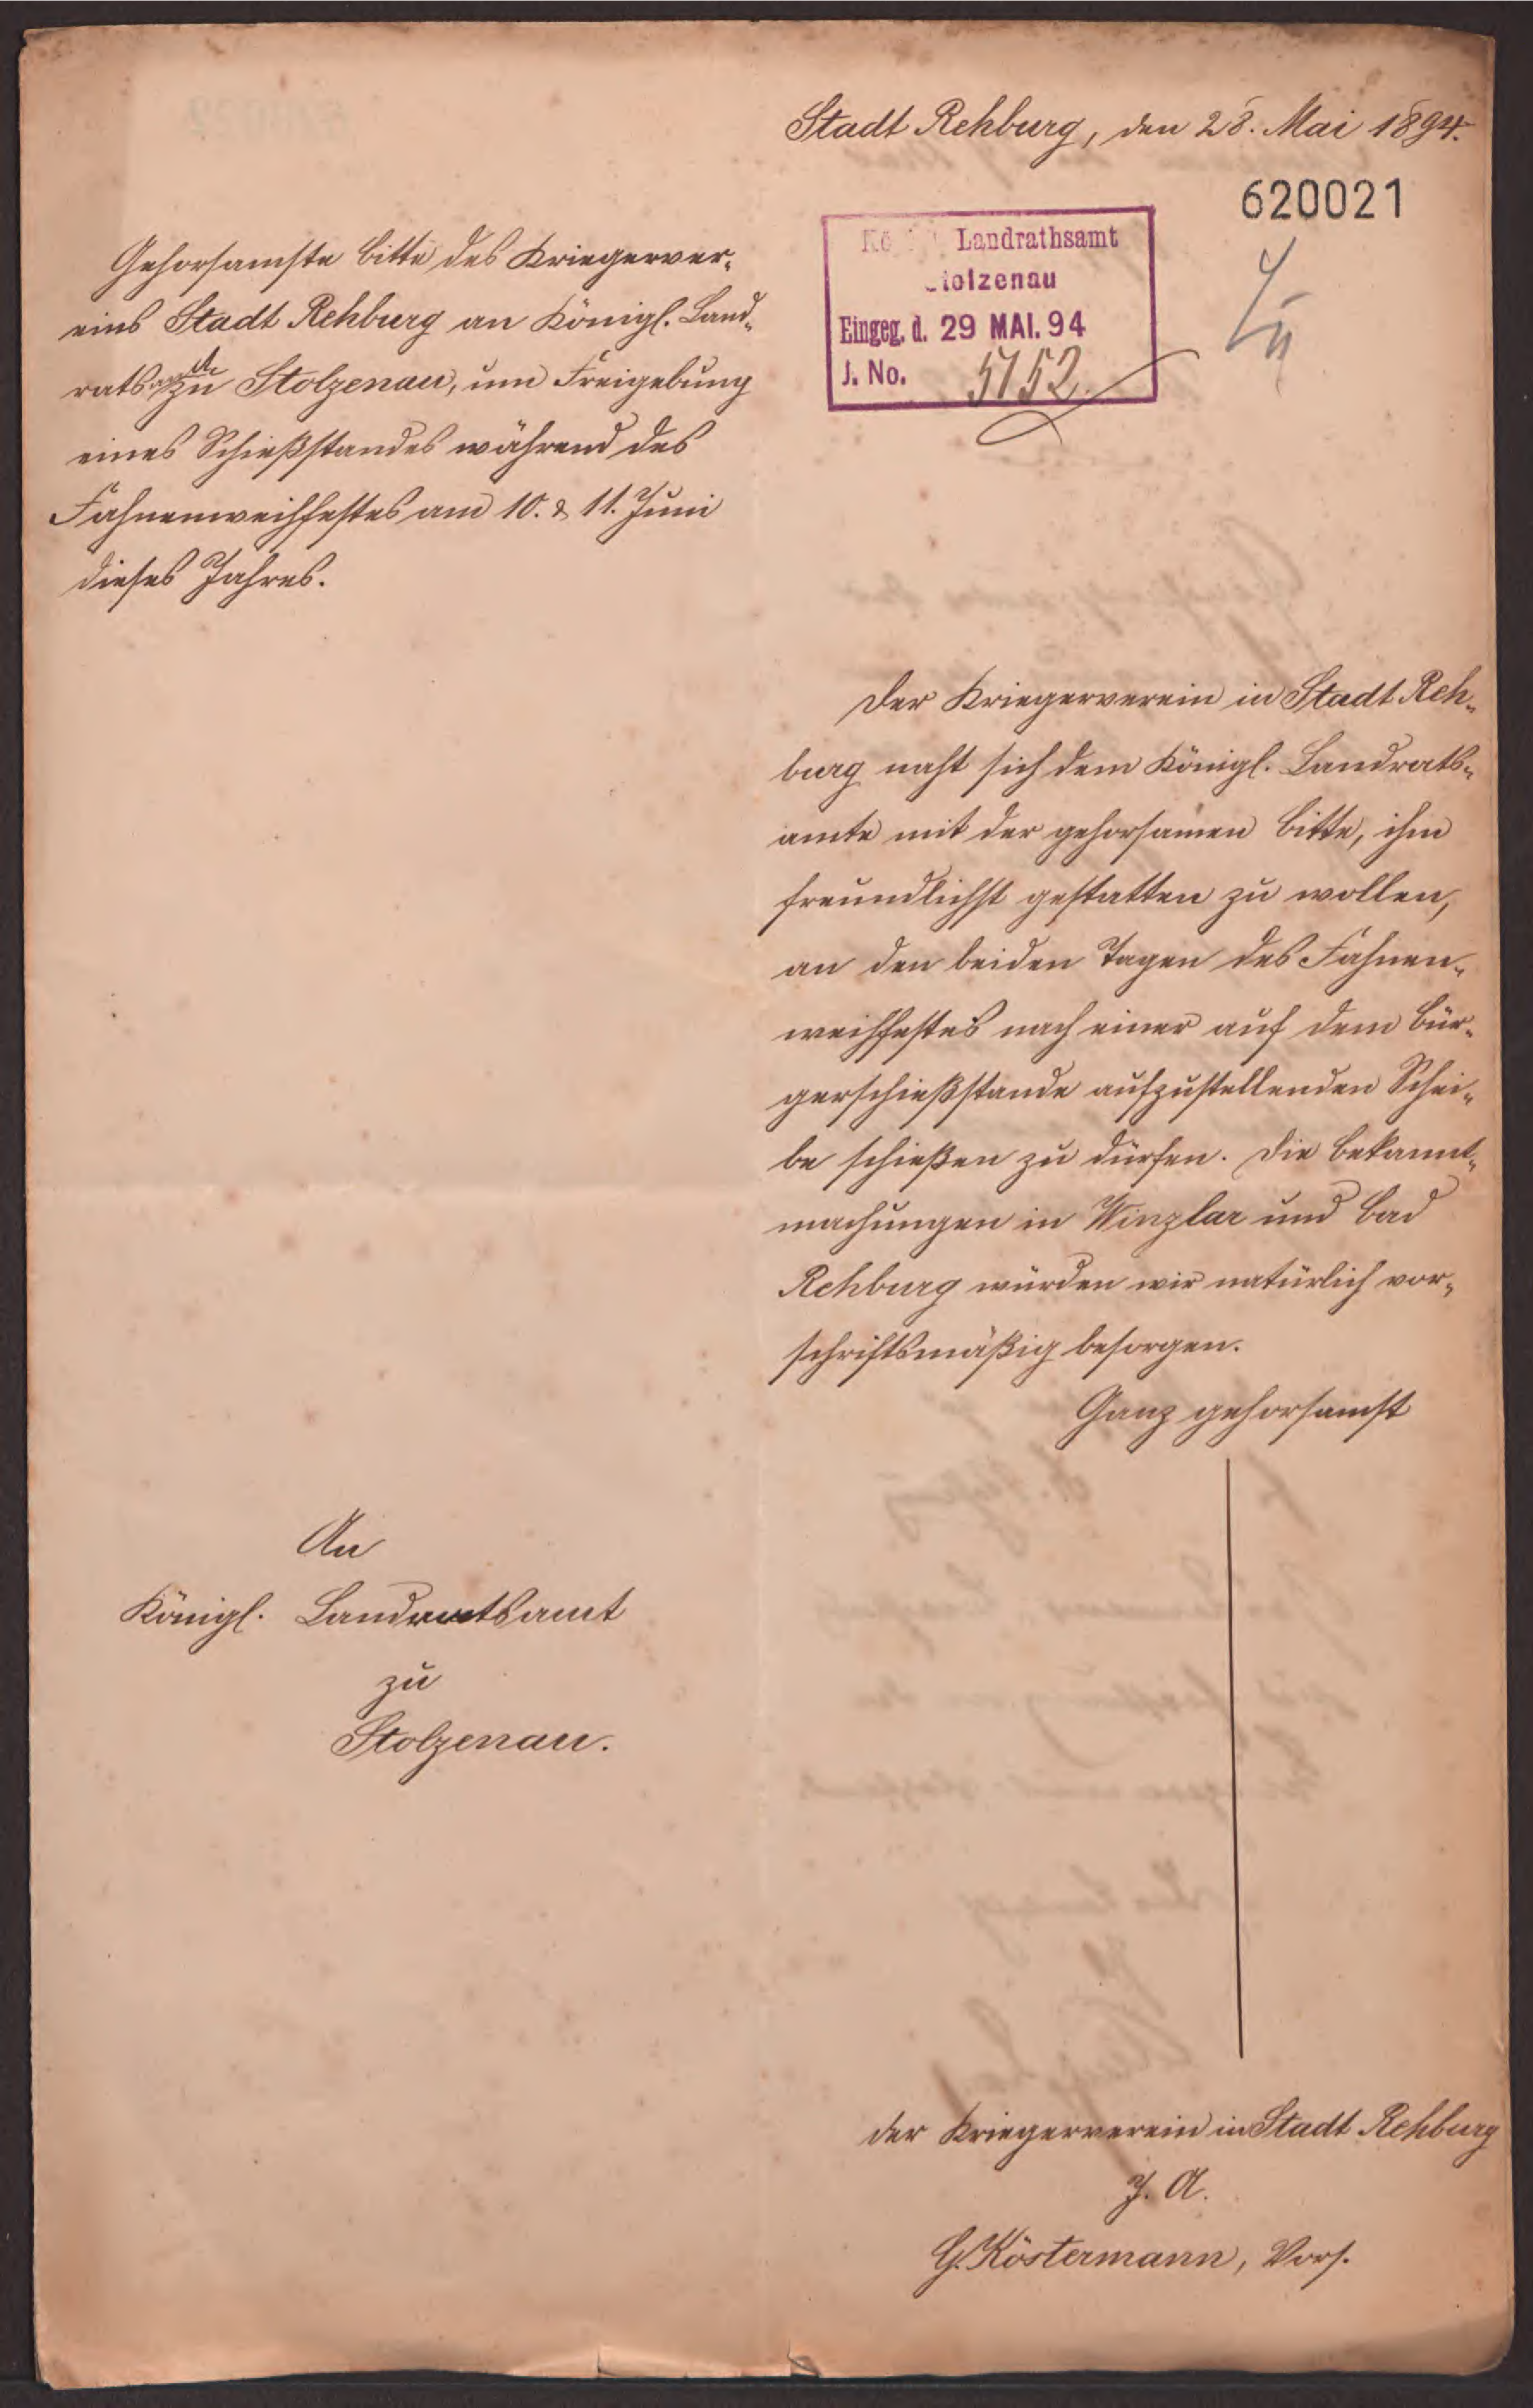 Stadt Rehburg, den 28. Mai 1894.
620021
Landrathsamt
Stolzenau
Eingeg. d. 29 MAI. 94
J. No. 5152.
Gehorsamste Bitte des Kriegerver-
eins Stadt Rehburg an Königl. Land-
ratsamt zu Stolzenau, um Freigebung
eines Schießstandes während des
Fahnenweihfestes am 10. & 11. Juni
dieses Jahres.
Der Kriegerverein in Stadt Reh-
burg naht sich dem Königl. Landrats-
amte mit der gehorsamen Bitte, ihm
freundlichst gestatten zu wollen,
an den beiden Tagen des Fahnen-
weihfestes nach einer auf dem Bür-
gerschießstande aufzustellenden Schei-
be schießen zu dürfen. Die Bekannt-
machungen in Winzlar und Bad
Rehburg würden wir natürlich vor-
schriftsmäßig besorgen.
Ganz gehorsamst
An
Königl. Landratsamt
zu
Stolzenau.
Der Kriegerverein in Stadt Rehburg
J. A.
G. Köstermann, Vors.